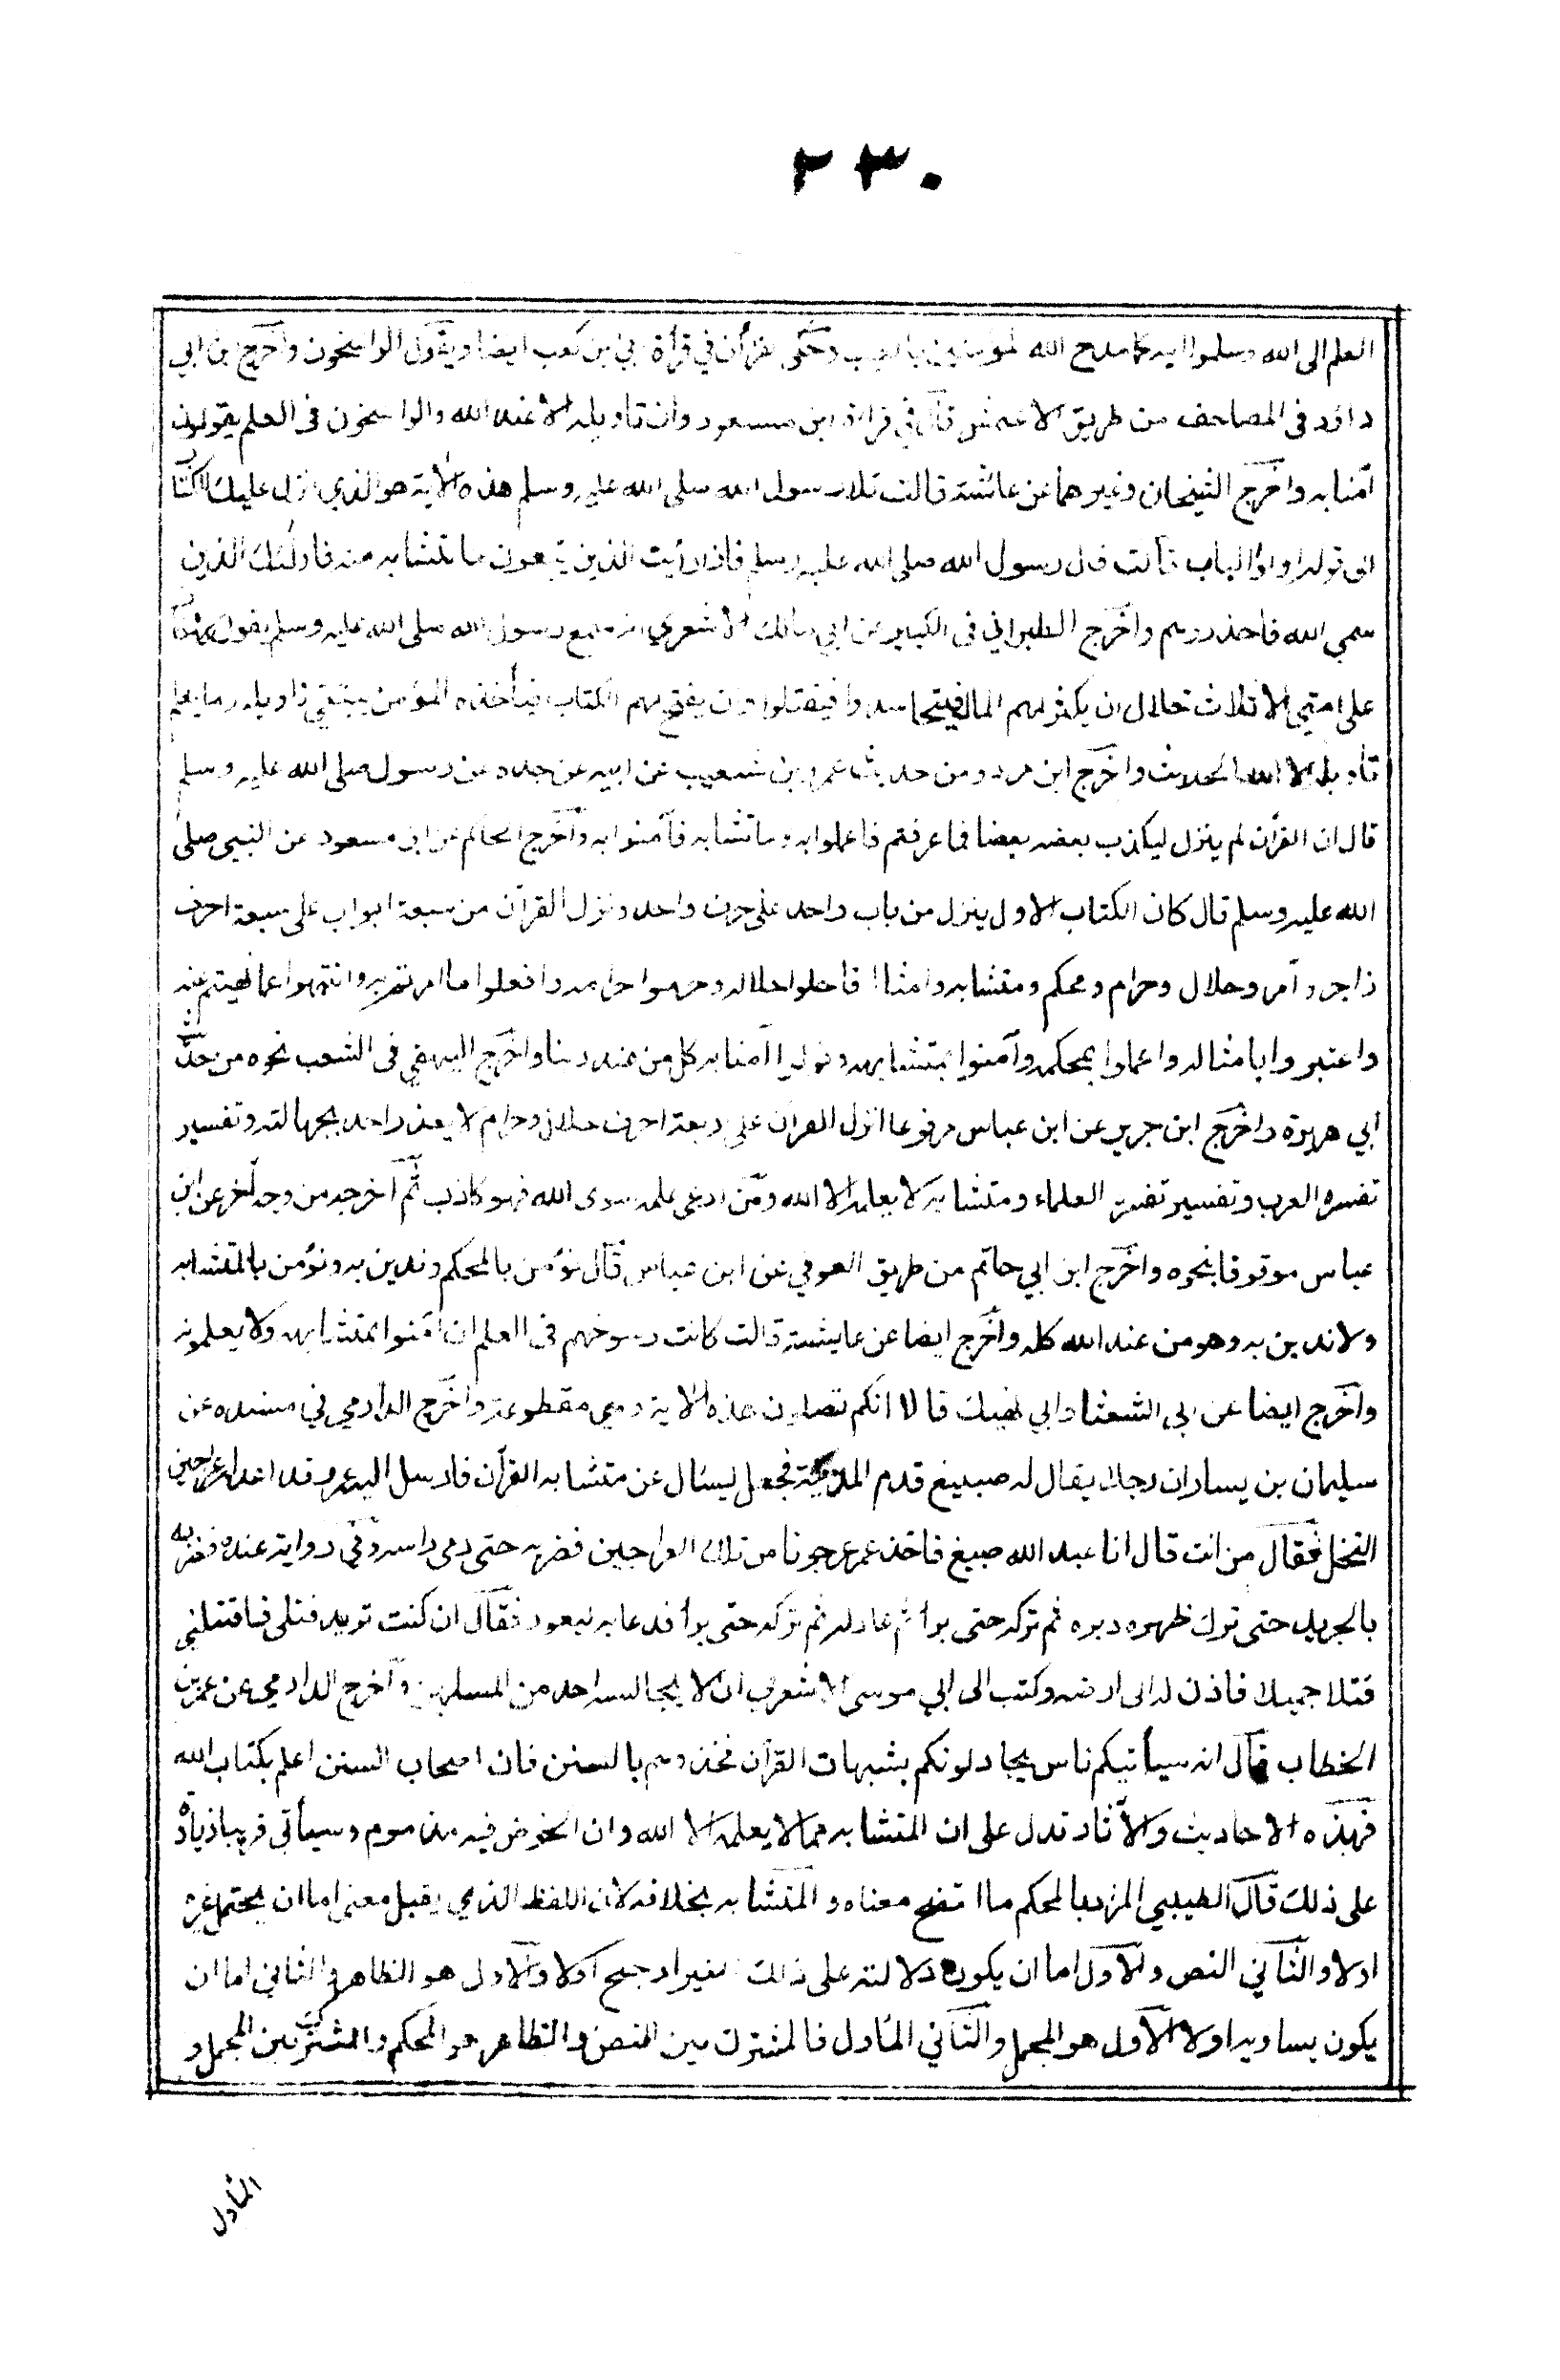 ٢٣٠
العلم الى الله وسلموا اليه كما مدح الله المؤمنين بالغيب وحكى الفرأن في قرأة ابي بن كعب ايضا ويقول الراسخون واخرج ابن ابي
داؤد فى المصاحف من طريق الاعمش قال في قراءة ابن مسعود وان تاويله الا عند الله والراسخون فى العلم يقولون
آمنا به واخرج الشيخان وغيرهما عن عائشة قالت تلا رسول الله صلى الله عليه وسلم هذه الاية هو الذي انزل عليك الكتاب
الى قوله اولوا الالباب قالت قال رسول الله صلى الله عليه وسلم فاذا رأيت الذين يتبعون ما تشابه منه فاولئك الذين
سمى الله فاحذروهم واخرج الطبراني فى الكبير عن ابي مالك الاشعري انه سمع رسول الله صلى الله عليه وسلم يقول
على امتي الا ثلاث خلال ان يكثر لهم المال فيتحاسدوا فيقتتلوا وان يفتح لهم الكتاب فيأخذه المؤمن يبتغي تاويله وما يعلم
تأويله الا الله الحديث واخرج ابن مردويه من حديث عمرو بن شعيب عن ابيه عن جده عن رسول صلى الله عليه وسلم
قال ان القرأن لم ينزل ليكذب بعضه بعضا فما عرفتم فاعملوا به وما تشابه فآمنوا به واخرج الحاكم عن ابن مسعود عن النبي صلى
الله عليه وسلم قال كان الكتاب الاول ينزل من باب واحد على حرف واحد ونزل القرآن من سبعة ابواب على سبعة احرف
زاجر وآمر وحلال وحرام ومحكم ومتشابه وامثال فاحلوا حلاله وحرموا حرامه وافعلوا ما امرتم به وانتهوا عما نهيتم عنه
واعتبروا بامثاله واعملوا بمحكمه وآمنوا بمتشابهه وقولوا آمنا به كل من عند ربنا واخرج البيهقي فى الشعب نحوه من حديث
ابي هريرة واخرج ابن جرير عن ابن عباس مرفوعا انزل القرآن على اربعة احرف حلال وحرام لا يعذر احد بجهالته وتفسير
تفسره العرب وتفسير تفسره العلماء ومتشابه لا يعلمه الا الله ومن ادعى علمه سوى الله فهو كاذب ثم اخرجه من وجه آخر عن ابن
عباس موقوفا بنحوه واخرج ابن ابي حاتم من طريق العوفي عن ابن عباس قال نؤمن بالمحكم وندين به ونؤمن بالمتشابه
ولا ندين به وهو من عند الله كله واخرج ايضا عن عايشة قالت كانت رسوخهم فى العلم ان آمنوا بمتشابهه ولا يعلمونه
واخرج ايضا عن ابى الشعثا وابي نهيك قالا انكم تصلون هذه الاية وهي مقطوعة واخرج الدارمي في مسنده عن
سليمان بن يسار ان رجلا يقال له صبيغ قدم المدينة فجعل يسئال عن متشابه القرآن فارسل اليه عمر وقد اعد له عراجين
النخل فقال من انت قال انا عبد الله صبيغ فاخذ عمر عرجونا من تلك العراجين فضربه حتى دمى راسه وفي رواية عنده فضربه
بالجريد حتى ترك ظهره دبره ثم تركه حتى برأ ثم عاد له ثم تركه حتى برأ فدعا به ليعود فقال ان كنت تريد قتلى فاقتلني
قتلا جميلا فاذن له الى ارضه وكتب الى ابي موسى الاشعري ان لا يجالسه احد من المسلمين واخرج الدارمي عن عمر بن
الخطاب قال انه سيأتيكم ناس يجادلونكم بشبهات القرآن فخذوهم بالسنن فان اصحاب السنن اعلم بكتاب الله
فهذه الاحاديث والآثار تدل على ان المتشابه مما لا يعلمه الا الله وان الخوض فيه مذموم وسيأتى قريبا زيادة
على ذلك قال الطيبي المراد بالمحكم ما اتضح معناه والمتشابه بخلافه لان اللفظ الذي يقبل معنى اما ان يحتمل غيره
اولا والثاني النص والاول اما ان يكون دلالته على ذلك الغير ارجح اولا والاول هو الظاهر والثاني اما ان
يكون يساويه اولا الاول هو المجمل والثاني المأول فالمشترك بين النص والظاهر هو المحكم والمشترك بين المجمل و
المأول